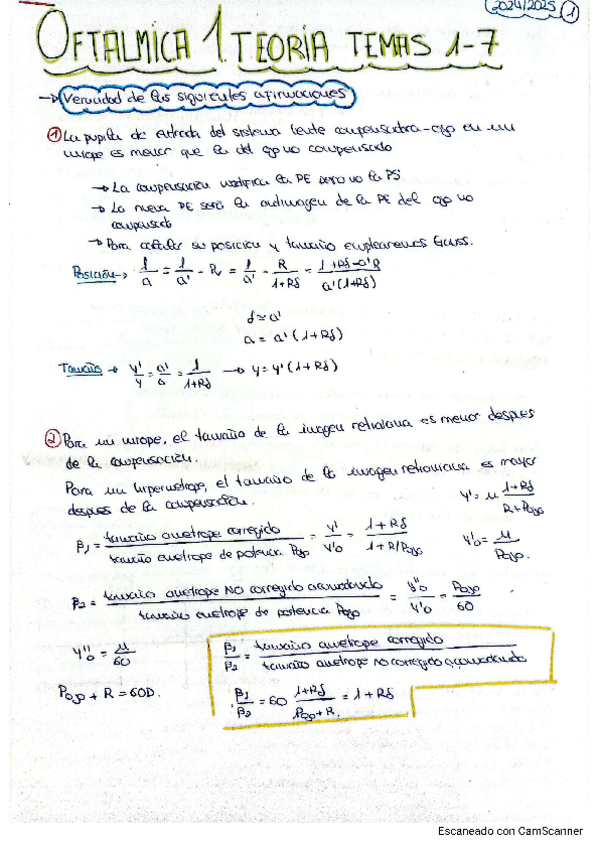 2024/2025 1
OFTALMICA 1. TEORIA TEMAS 1-7
→ Veracidad de las siguientes afirmaciones
1 La pupila de entrada del sistema lente compensadora-ojo en un
miope es menor que la del ojo no compensado
→ La compensación modifica la PE pero no la PS
→ La nueva PE será la antiimagen de la PE del ojo no
compensado
→ Para calcular su posición y tamaño emplearemos Gauss.
Posición → 1/a = 1/a' - Pc = 1/a' - R/(1+Rδ) = (1+Rδ-a'R)/(a'(1+Rδ))
δ≃a'
a = a'(1+Rδ)
Tamaño → y'/y = a'/a = 1/(1+Rδ) → y = y'(1+Rδ)
2 Para un miope, el tamaño de la imagen retiniana es menor después
de la compensación.
Para un hipermetrope, el tamaño de la imagen retiniana es mayor
después de la compensación.
y' = u (1+Rδ)/(R+Pojo)
β1 = tamaño ametrope corregido / tamaño emetrope de potencia Pojo = y'/y'o = (1+Rδ)/(1+R/Pojo)
y'o = u/Pojo.
β2 = tamaño ametrope NO corregido acomodado / tamaño emetrope de potencia Pojo = y''o/y'o = Pojo/60
y''o = u/60
Pojo + R = 60D.
β1/β2 = tamaño ametrope corregido / tamaño ametrope no corregido acomodado
β1/β2 = 60 (1+Rδ)/(Pojo+R) = 1+Rδ
Escaneado con CamScanner